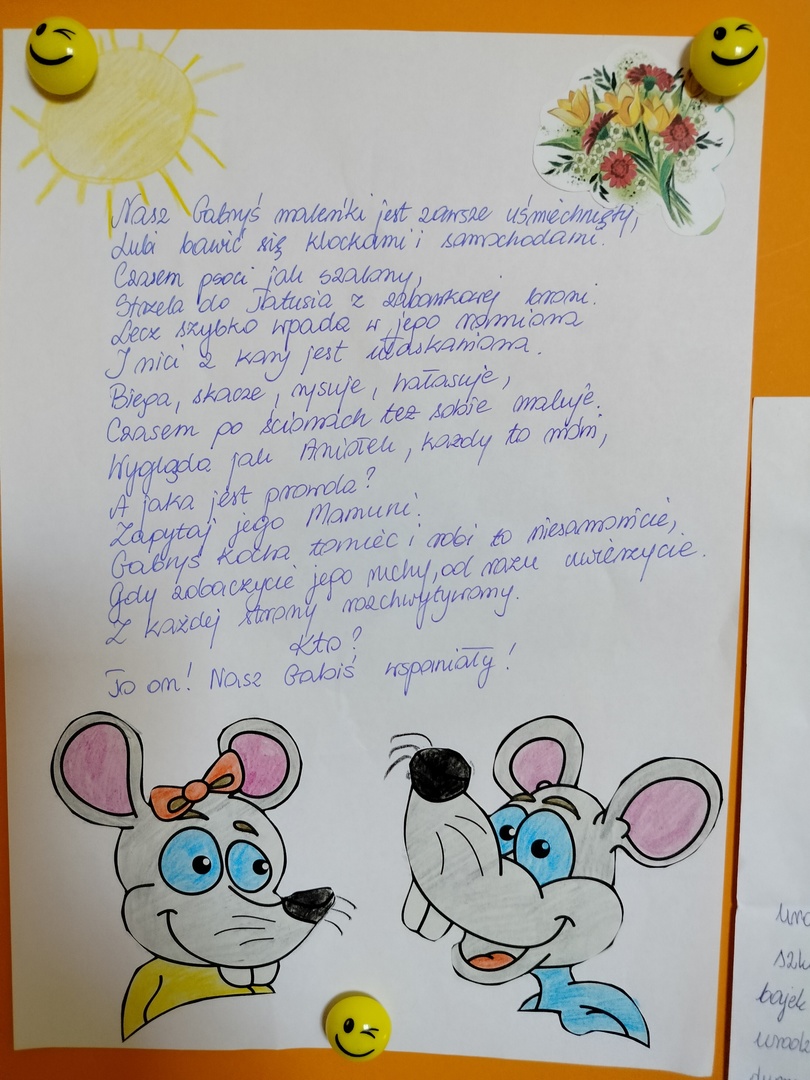 Nasz Gabryś maleńki jest zawsze uśmiechnięty,
Lubi bawić się klockami i samochodami.
Czasem psoci jak szalony,
Strzela do Tatusia z zabawkowej broni.
Lecz szybko wpada w jego ramiona
I nici z kary jest ułaskawiona.
Biega, skacze, rysuje, hałasuje,
Czasem po ścianach też sobie maluje.
Wygląda jak Aniołek, każdy to mówi,
A jaka jest prawda?
Zapytaj jego Mamuni.
Gabryś kocha taniec i robi to niesamowicie,
Gdy zobaczycie jego ruchy, od razu uwierzycie.
Z każdej strony rozchwytywany.
Kto?
To on! Nasz Gabiś wspaniały!
bajek